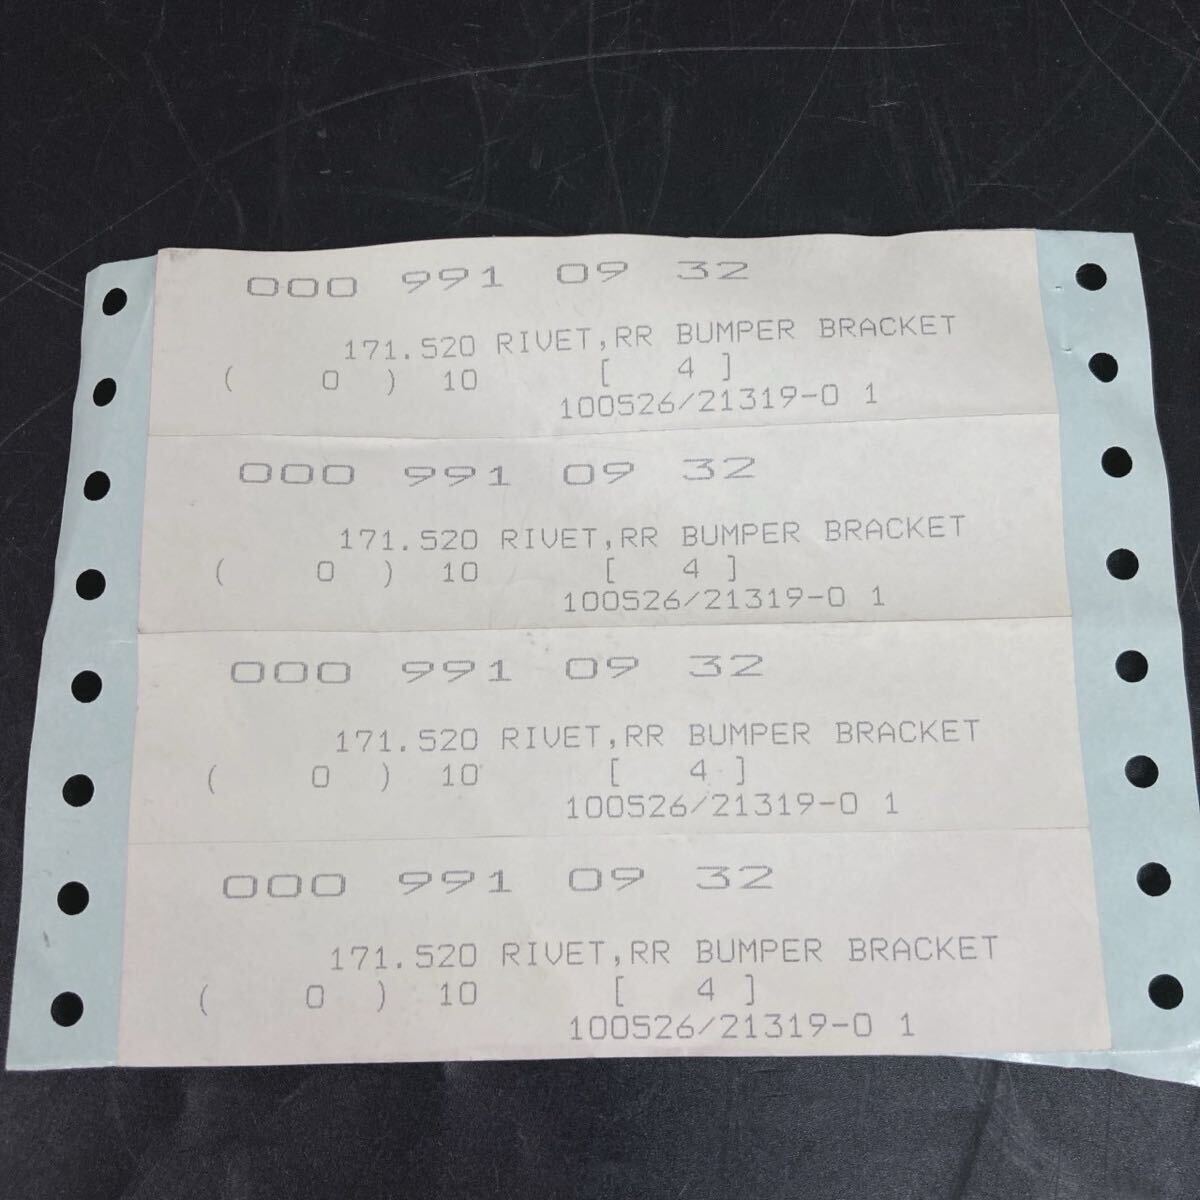 000 991 09 32
171.520 RIVET,RR BUMPER BRACKET
( 0 ) 10 [ 4 ]
100526/21319-0 1
000 991 09 32
171.520 RIVET,RR BUMPER BRACKET
( 0 ) 10 [ 4 ]
100526/21319-0 1
000 991 09 32
171.520 RIVET,RR BUMPER BRACKET
( 0 ) 10 [ 4 ]
100526/21319-0 1
000 991 09 32
171.520 RIVET,RR BUMPER BRACKET
( 0 ) 10 [ 4 ]
100526/21319-0 1